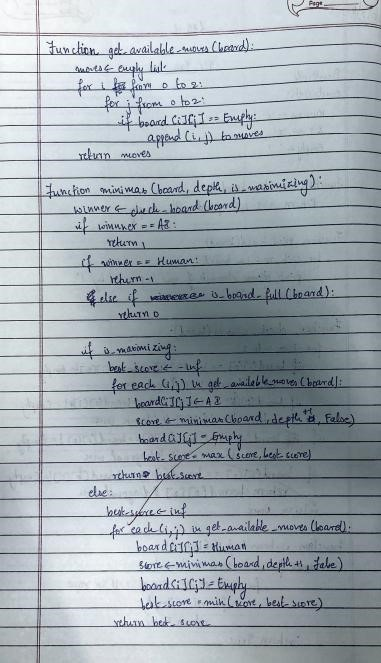 Page
Function get_available_moves(board):
moves ← empty list
for i from 0 to 2:
for j from 0 to 2:
if board[i][j] == Empty:
append (i, j) to moves
return moves
Function minimax(board, depth, is_maximizing):
winner ← check_board(board)
if winnner == AI:
return 1
if winner == Human:
return -1
else if is_board_full(board):
return 0
if is_maximizing:
best_score ← -inf
for each (i,j) in get_available_moves(board):
board[i][j] ← AI
score ← minimax(board, depth+1, False)
board[i][j] = Empty
best_score = max(score, best_score)
return best_score
else:
best_score ← inf
for each (i,j) in get_available_moves(board):
board[i][j] = Human
score ← minimax(board, depth+1, False)
board[i][j] = Empty
best_score = min(score, best_score)
return best_score